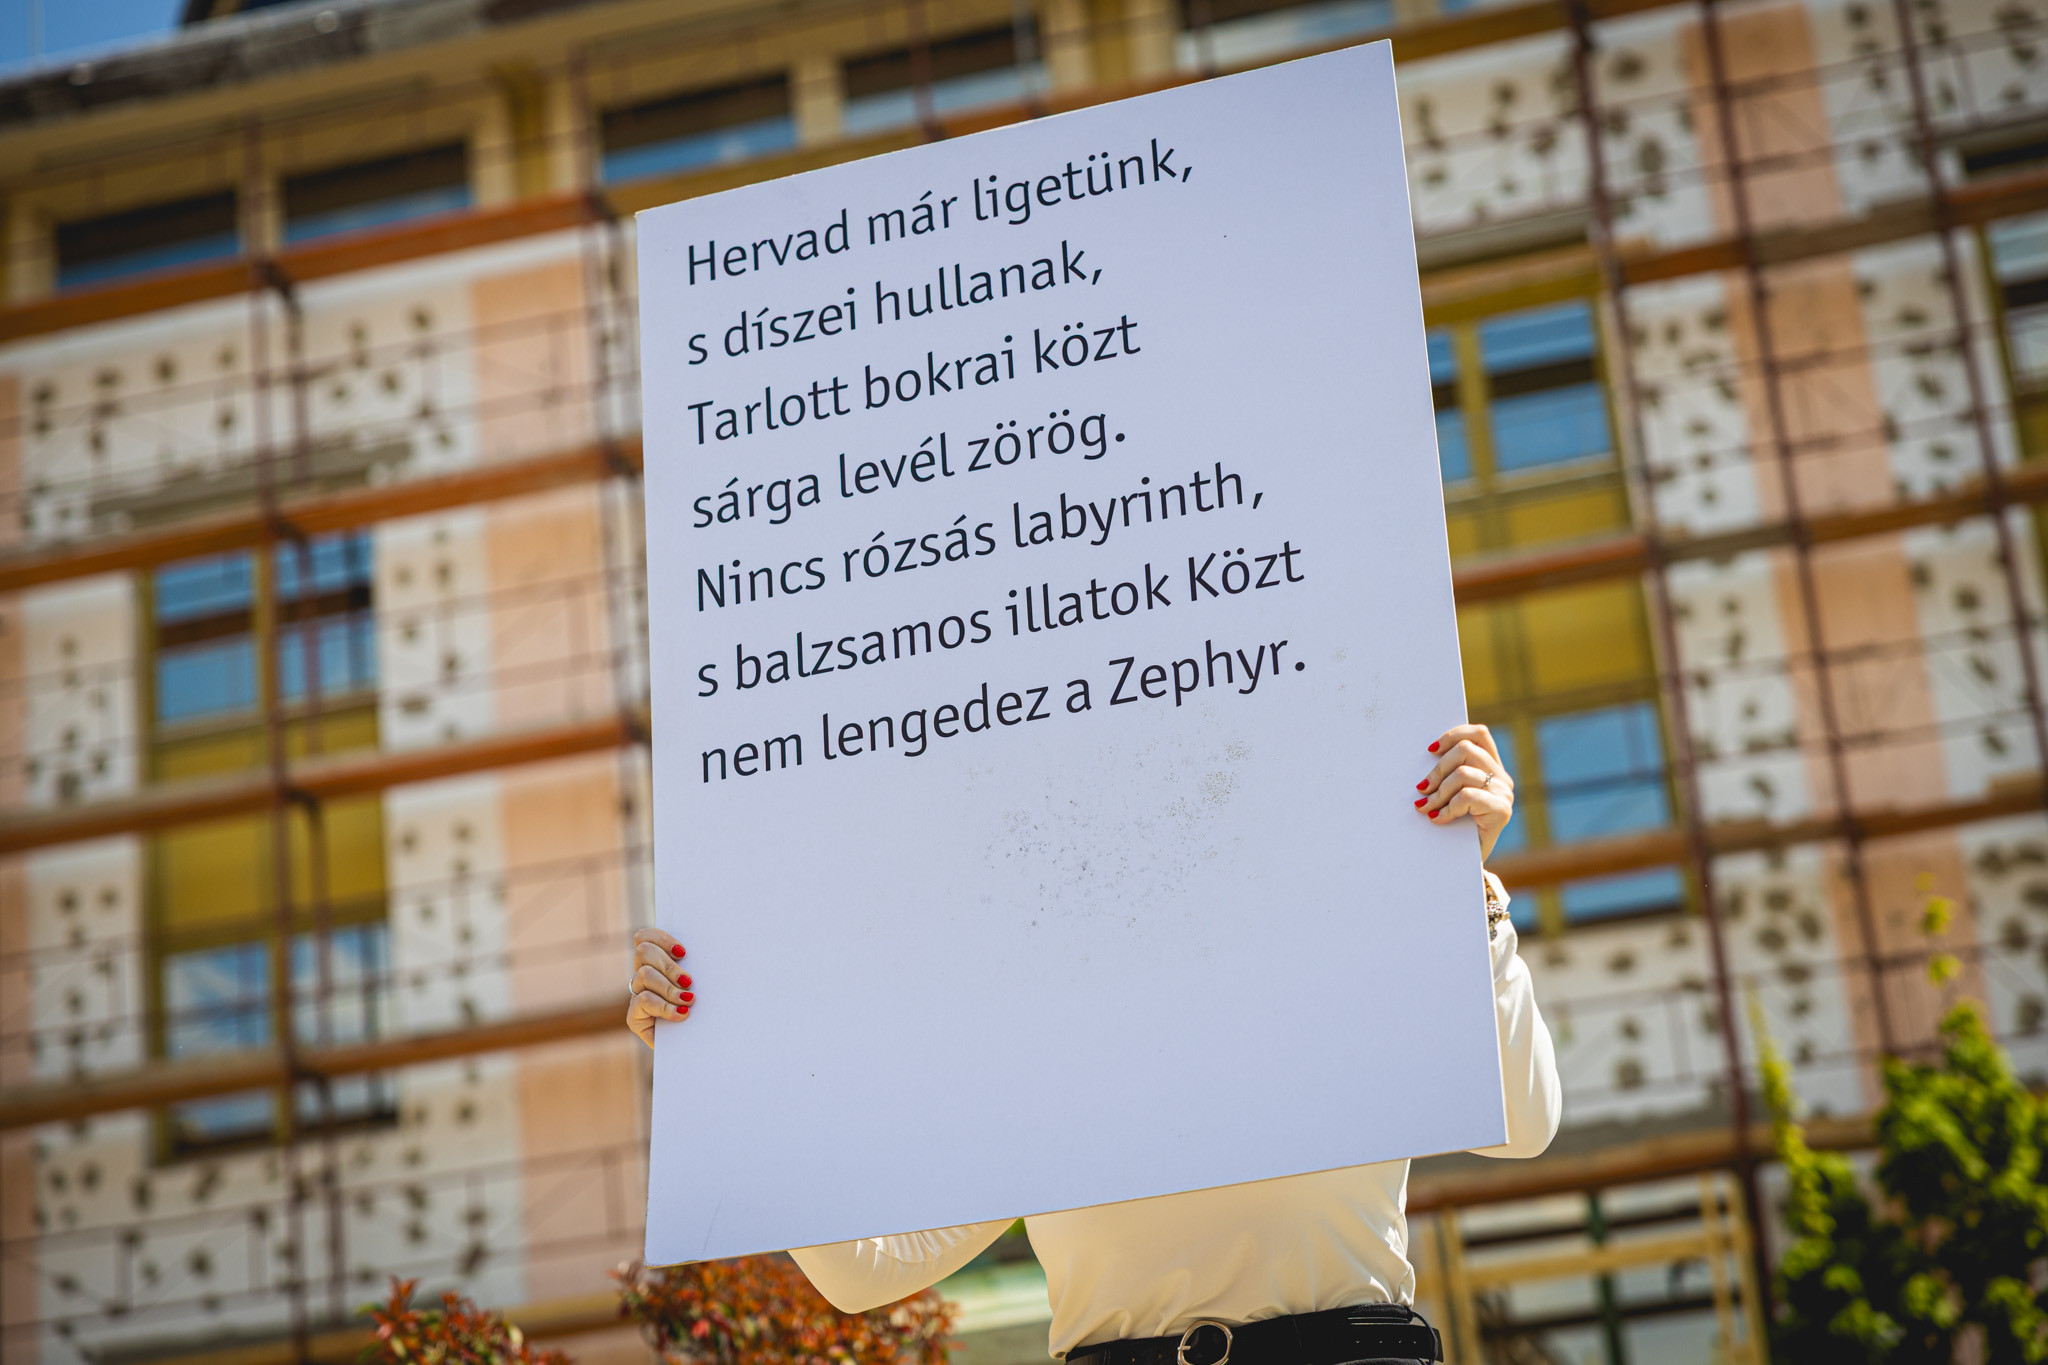 Hervad már ligetünk,
s díszei hullanak,
Tarlott bokrai közt
sárga levél zörög.
Nincs rózsás labyrinth,
s balzsamos illatok Közt
nem lengedez a Zephyr.